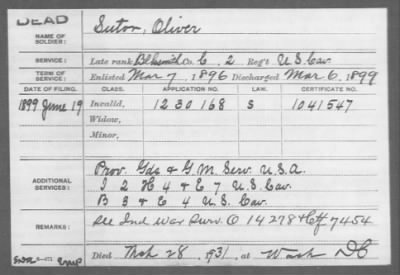 DEAD
NAME OF SOLDIER: Sutor, Oliver
SERVICE: Late rank Blksmith Co. C, 2 Reg't U.S. Cav.
TERM OF SERVICE: Enlisted Mar 7, 1896 Discharged Mar 6, 1899
DATE OF FILING. CLASS. APPLICATION NO. LAW. CERTIFICATE NO.
1899 June 19 Invalid, 1230168 S 1041547
Widow,
Minor,
ADDITIONAL SERVICES: Prov. Gds & G. M. Serv. U.S.A.
I 2 H 4 & E 7 U.S. Cav.
B 3 & E 4 U.S. Cav.
REMARKS: See Ind War Surv. O 14278 & Ctf 7454
Died Mch 28, 1931, at Wash DC